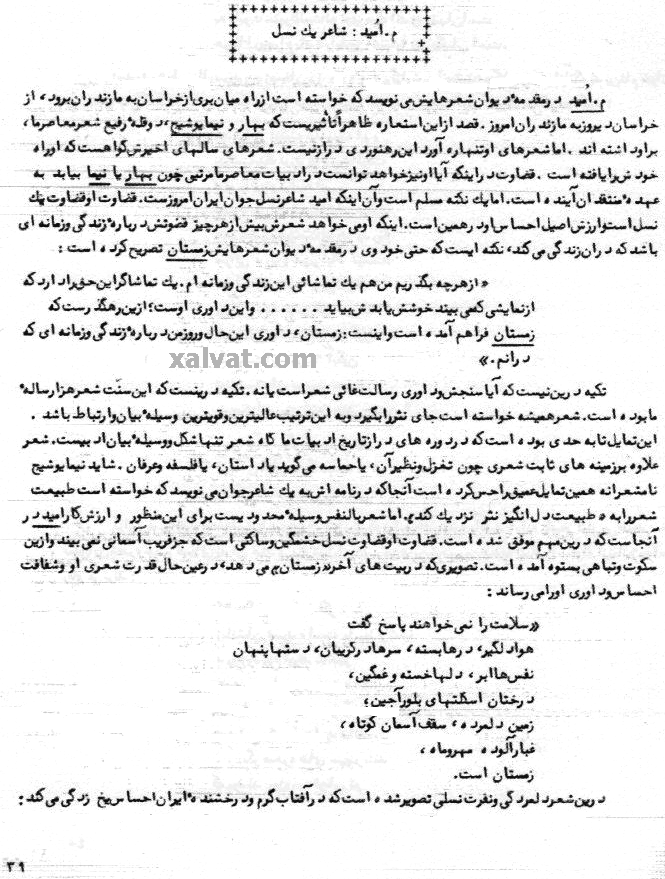 م. اُمید : شاعر یك نسل
م. اُمید در مقدمهٔ دیوان شعرهایش می نویسد که خواسته است از راه میان بری از خراسان به مازندران برود، از
خراسان دیروز به مازندران امروز. قصد از این استعاره ظاهراً تأثیریست که بهار و نیما یوشیج، دو قلهٔ رفیع شعر معاصر ما،
بر او داشته اند. اما شعرهای او تنها ره آورد این رهنوردی دراز نیست. شعرهای سالهای اخیرش گواهست که او راه
خودش را یافته است. قضاوت در اینکه آیا او نیز خواهد توانست در ادبیات معاصر ما مرتبی چون بهار یا نیما بیابد به
عهدهٔ منتقدان آینده است. اما یك نکته مسلم است و آن اینکه امید شاعر نسل جوان ایران امروزست. قضاوت او قضاوت یك
نسل است و ارزش اصیل احساس او در همین است. اینکه او می خواهد شعرش بیش از هر چیز قضوتش دربارهٔ زندگی و زمانه ای
باشد که در آن زندگی می کند، نکته ایست که حتی خود وی در مقدمهٔ دیوان شعرهایش زمستان تصریح کرده است :
« از هر چه بگذریم من هم یك تماشائی این زندگی و زمانه ام. یك تماشاگر این حق را دارد که
از نمایشی که می بیند خوشش یا بدش بیاید . . . . . . و این داوری اوست؛ ازین رهگذرست که
زمستان فراهم آمده است و اینست: زمستان، داوری این حال و روز من دربارهٔ زندگی و زمانه ای که
در آنم.»
xalvat.com
تکیه درین نیست که آیا سنجش و داوری رسالت غائی شعر است یا نه. تکیه درینست که این سنّت شعر هزار سالهٔ
ما بوده است. شعر همیشه خواسته است جای نثر را بگیرد و به این ترتیب عالیترین و قویترین وسیلهٔ بیان و ارتباط باشد .
این تمایل تا به حدی بوده است که در دوره های درازِ تاریخ ادبیات ما گاه شعر تنها شکل و وسیلهٔ بیان ادبیست. شعر
علاوه بر زمینه های ثابت شعری چون تغزل و نظیر آن، یا حماسه می گوید یا داستان، یا فلسفه و عرفان. شاید نیما یوشیج
نا مشعرانه همین تمایل عمیق را حس کرده است آنجا که در نامه اش به یك شاعر جوان می نویسد که خواسته است طبیعت
شعر را به طبیعت دل انگیز نثر نزدیك کند. اما شعر بالنفس وسیلهٔ محدودیست برای این منظور و ارزش کار امید در
آنجاست که درین مهم موفق شده است. قضاوت او قضاوت نسل خشمگین و ساکتی است که جز فریب آسمانی نمی بیند و ازین
سکوت و تباهی بستوه آمده است. تصویری که در بیت های آخر «زمستان» می دهد، در عین حال قدرت شعری او و شفافت
احساس و داوری او را می رساند :
«سلامت را نمی خواهند پاسخ گفت
هوا دلگیر، درها بسته، سرها در گریبان، دستها پنهان
نفس ها ابر، دلها خسته و غمگین،
درختان اسکلتهای بلور آجین؛
زمین دلمرده، سقف آسمان کوتاه،
غبار آلوده مهر و ماه،
زمستان است.
درین شعر دلمردگی و نفرت نسلی تصویر شده است که در آفتاب گرم و درخشندهٔ ایران احساس یخ زدگی می کند :
۳۹